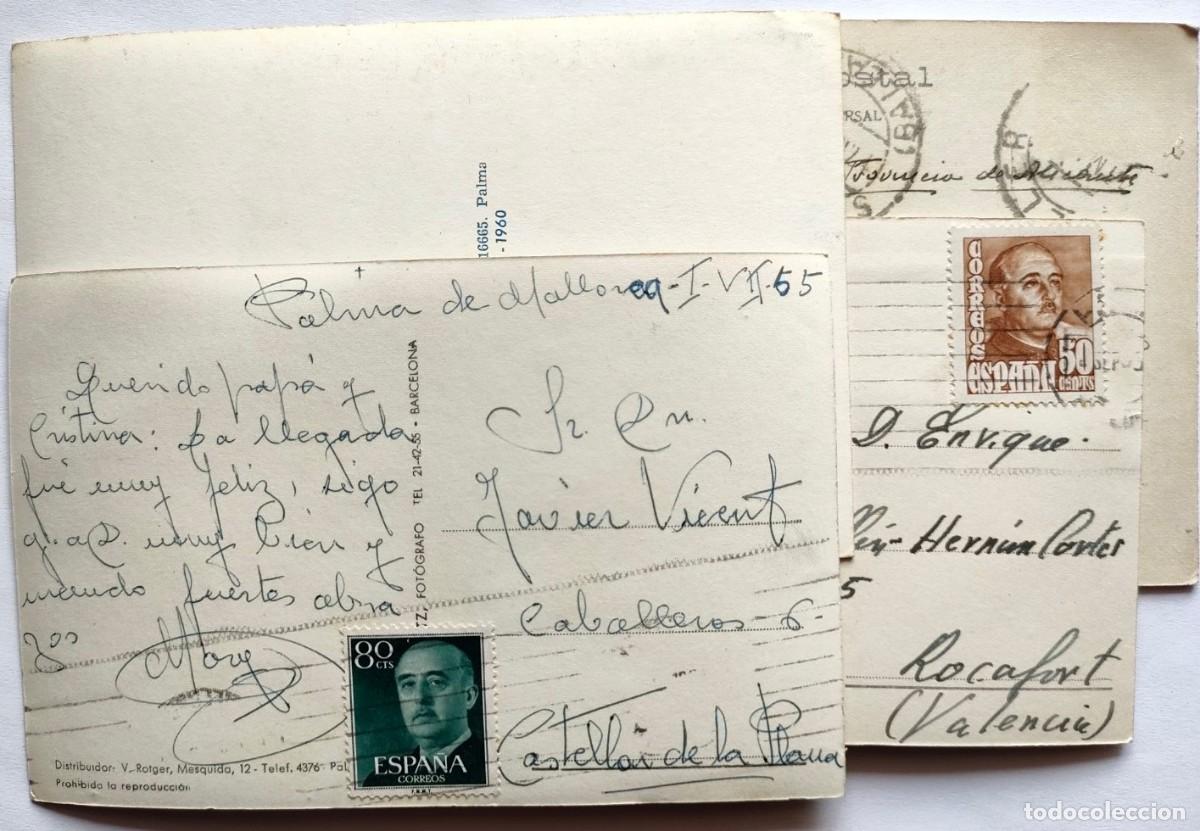 16665. Palma
-1960
Palma de Mallorca-I-VII-65
Querido papá y
Cristina: La llegada
fué muy feliz, sigo
g.a D. muy bien y
mando fuertes abra
zos
Mary
FOTÓGRAFO TEL 21-42-55 - BARCELONA
Sr. Dn.
Javier Vicent
Caballeros-6-
Castellon de la Plana
80
CTS
ESPAÑA
CORREOS
Distribuidor: V. Rotger, Mesquida, 12 - Telef. 4376 Pal
Prohibida la reproducción
ostal
RSAL
Provincia de Alicante
CORREOS
50
CENTS
ESPAÑA
D. Enrique
Hernán Cortés
5
Rocafort
(Valencia)
todocoleccion